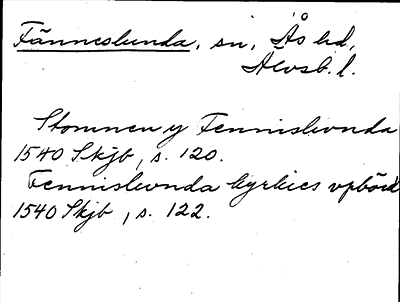 Fänneslunda, sn, Ås hd,
Älvsb. l.
Stomnen y Fennislwnda
1540 Skjb, s. 120.
Fennislwnda kyrkies vpbörd
1540 Skjb, s. 122.